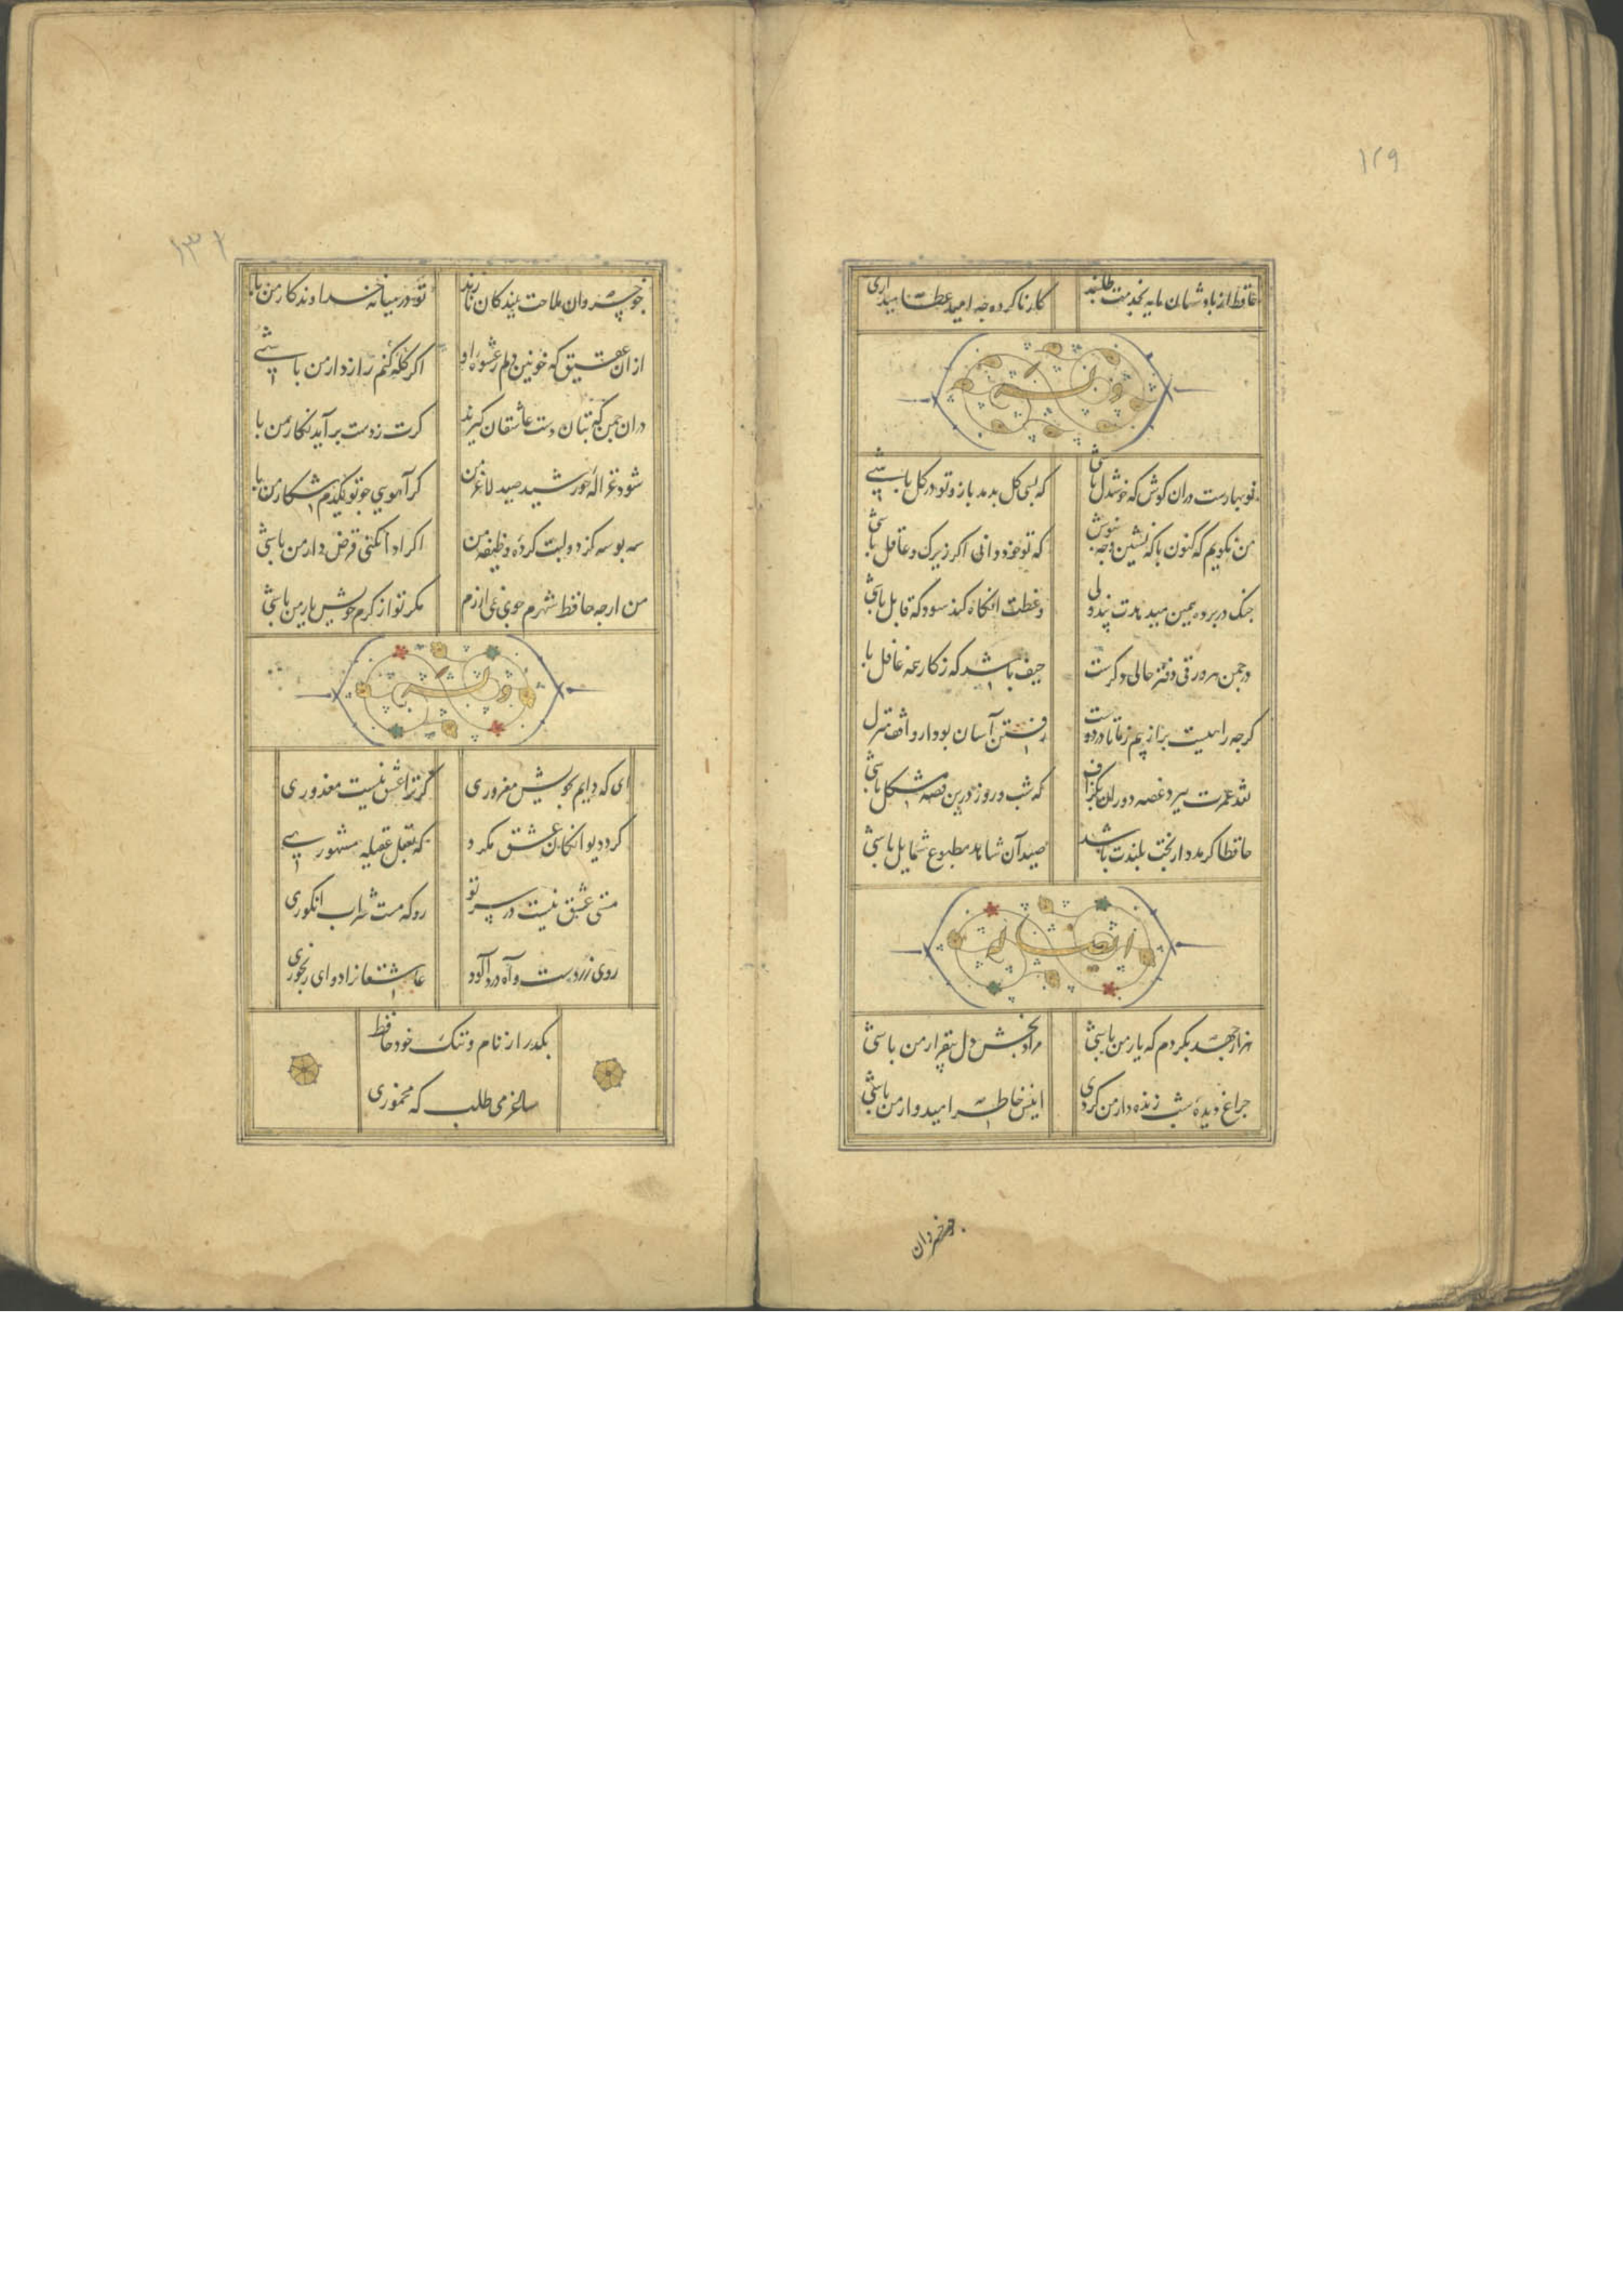 ۱۲۹
حافظ از پادشهان مایه بخدمت طلبند کار ناکرده چه امید عطا میداری
وله
نوبهارست دران کوش که خوشدل باشی که بسی کل بدمد باز و تو در کل باشی
من نکویم که کنون با که نشین وچه بنوش که تو خود دانی اکر زیرک و عاقل باشی
چنک در پرده همین میدهدت پند ولی وعظت آنکاه کند سود که قابل باشی
در چمن هر ورقی دفتر حالی دکرست حیف باشد که ز کار همه غافل با
کرچه راهیست پر از بیم ز ما تا در دوست رفتن آسان بود ار واقف منزل
نقد عمرت ببرد غصه دوران بکزاف که شب و روز درین قصه مشکل باشی
حافظا کر مدد از بخت بلندت باشد صید آن شاهد مطبوع شمایل باشی
ایضا له
هزار جهد بکردم که یار من باشی مراد بخش دل بیقرار من باشی
چراغ دیده شب زنده دار من کردی انیس خاطر امیدوار من باشی
چو خسروان
۱۳۱
چو خسروان ملاحت ببندکان نازند تو در میانه خداوندکار من با
ازان عقیق که خونین دلم ز عشوه او اکر کله کنم راز دار من باشی
دران چمن که بتان دست عاشقان کیرند کرت ز دست برآید نکار من با
شود غزاله خورشید صید لاغر من کر آهویی چو تو یکدم شکار من با
سه بوسه کز دو لبت کرده وظیفه من اکر ادا نکنی قرض دار من باشی
من ارچه حافظ شهرم جوی نمی ارزم مکر تو از کرم خویش یار من باشی
وله
ای که دایم بخویش مغروری کر ترا عشق نیست معذوری
کرد دیوانکان عشق مکرد که بعقل عقیله مشهوری
مستی عشق نیست در سر تو رو که مست شراب انکوری
روی زردست و آه درد آلود عاشقانرا دوای رنجوری
بکذر از نام و ننک خود حافظ
ساغر می طلب که مخموری